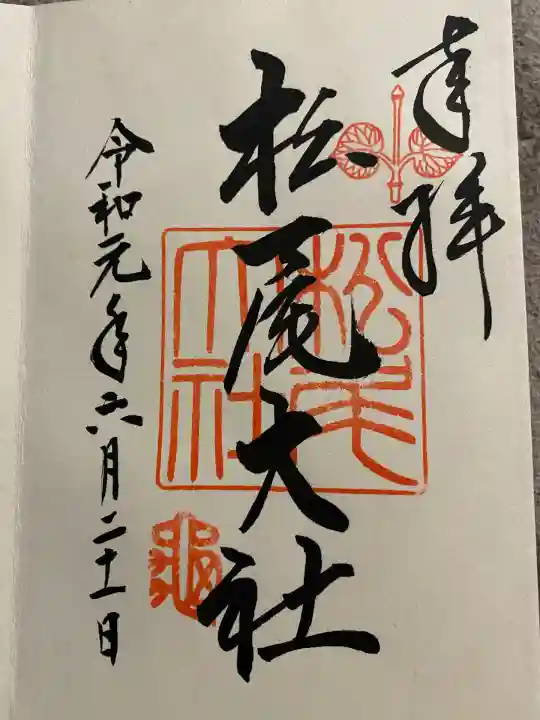 奉拝
松尾大社
松尾大社
令和元年六月二十一日
亀